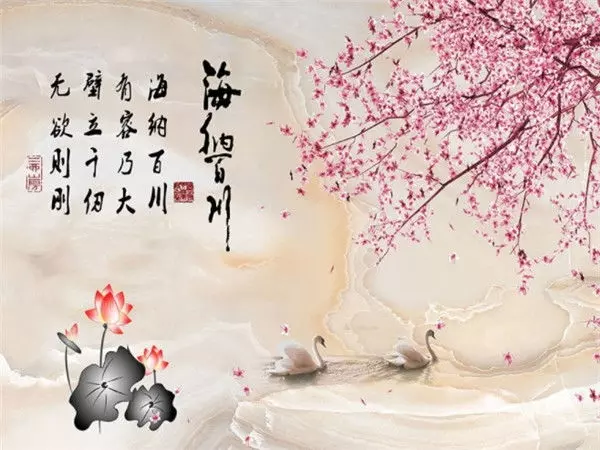 海纳百川
海纳百川
有容乃大
壁立千仞
无欲则刚